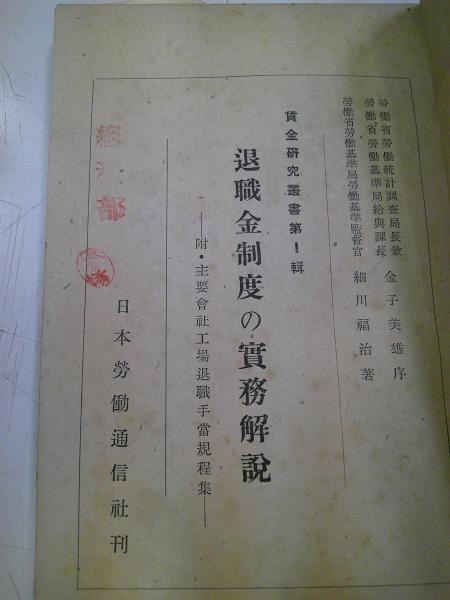 勞働省勞働統計調査局長兼
勞働省勞働基準局給與課長
金子美雄序
勞働省勞働基準局勞働基準監督官
細川福治著
賃金研究叢書第1輯
退職金制度の實務解說
附・主要會社工場退職手當規程集
日本勞働通信社刊